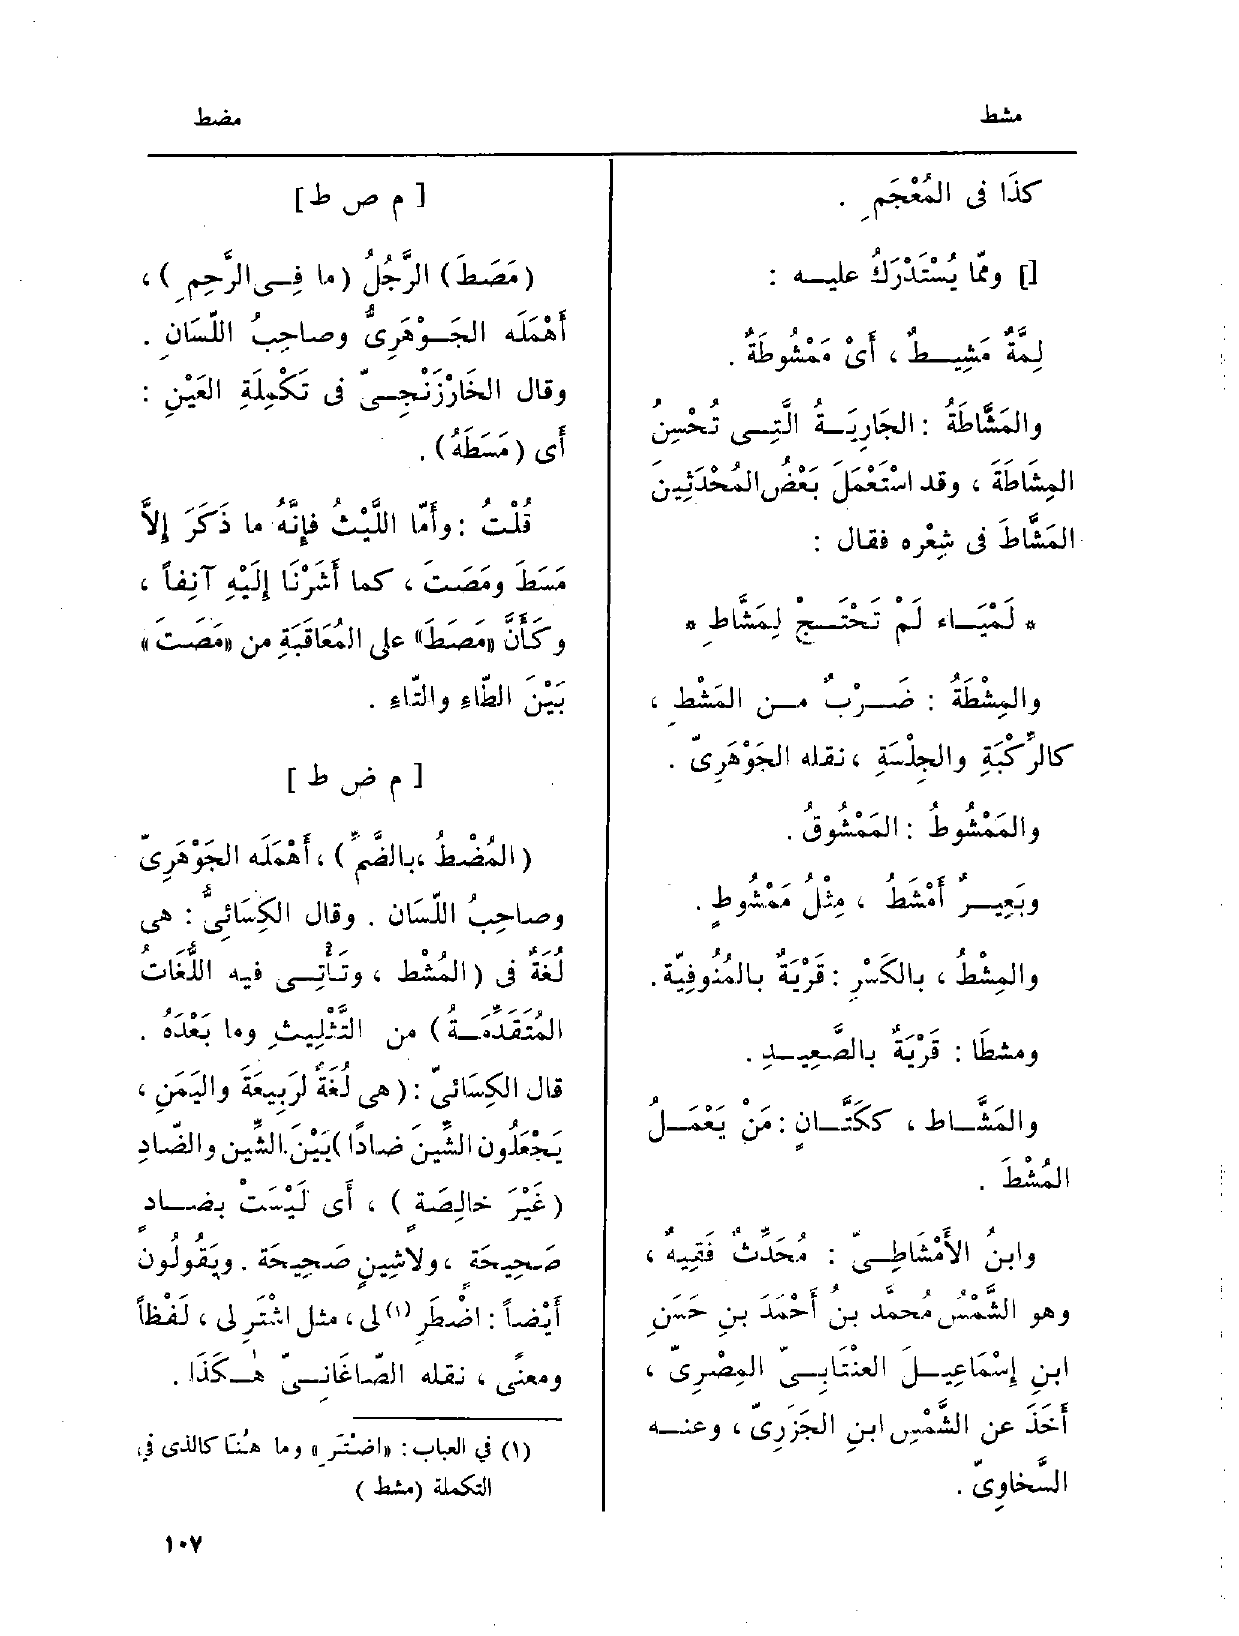 مشط
مضط
كذَا فى المُعْجَمِ .
[] وممّا يُسْتَدْرَكُ عليه :
لِمَّةٌ مَشِيطٌ ، أَىْ مَمْشُوطَةٌ .
والمَشَّاطَةُ : الجَارِيَةُ الَّتِى تُحْسِنُ
المِشَاطَةَ ، وقد استَعْمَلَ بَعْضُ المُحْدَثِينَ
المَشَّاطَ فى شِعْره فقال :
* لَمْيَاء لَمْ تَحْتَجْ لِمَشَّاطِ *
والمِشْطَةُ : ضَرْبٌ من المَشْطِ ،
كالرِّكْبَةِ والجِلْسَةِ ، نقله الجَوْهَرِىّ .
والمَمْشُوطُ : المَمْشُوقُ .
وبَعِيرٌ أَمْشَطُ ، مِثْلُ مَمْشُوطٍ .
والمِشْطُ ، بالكَسْرِ : قَرْيَةٌ بالمُنُوفِيّة .
ومشطَا : قَرْيَةٌ بالصَّعِيدِ .
والمَشَّاط ، ككَتَّانٍ : مَنْ يَعْمَلُ
المُشْطَ .
وابنُ الأَمْشَاطِىّ : مُحَدِّثٌ فَقِيهٌ ،
وهو الشَّمْسُ مُحمد بنُ أَحْمَدَ بنِ حَسَنِ
ابنِ إِسْمَاعِيلَ العنْتَابِىّ المِصْرِىّ ،
أَخَذَ عن الشَّمْسِ ابنِ الجَزَرِىّ ، وعنه
السَّخاوِىّ .
[ م ص ط ]
( مَصَطَ ) الرَّجُلُ ( ما فِى الرَّحِمِ ) ،
أَهْمَلَه الجَوْهَرِىُّ وصاحِبُ اللّسَانِ .
وقال الخَارْزَنْجِىّ فى تَكْمِلَةِ العَيْنِ :
أَى ( مَسَطَهُ ) .
قُلْتُ : وأَمّا اللَّيْثُ فإِنَّهُ ما ذَكَرَ إِلاَّ
مَسَطَ ومَصَتَ ، كما أَشَرْنَا إِلَيْهِ آنِفاً ،
وكأَنَّ «مَصَطَ» على المُعَاقَبَةِ من «مَصَتَ»
بَيْنَ الطّاءِ والتّاءِ .
[ م ض ط ]
( المُضْطُ ، بالضَّمِّ ) ، أَهْمَلَه الجَوْهَرِىّ
وصاحِبُ اللّسَان . وقال الكِسَائىُّ : هى
لُغَةٌ فى ( المُشْط ، وتَأْتِى فيه اللُّغَاتُ
المُتَقَدِّمَةُ ) من التَّثْلِيثِ وما بَعْدَهُ .
قال الكِسَائىّ : ( هى لُغَةٌ لرَبِيعَةَ واليَمَنِ ،
يَجْعَلُون الشِّينَ ضادًا ) بَيْنَ الشِّين والضّادِ
( غَيْرَ خالِصَةٍ ) ، أَى لَيْسَتْ بضادٍ
صَحِيحَةٍ ، ولاشِينٍ صَحِيحَة . ويَقُولُونَ
أَيْضاً : اضْطَرِ (١) لى ، مثل اشْتَرِ لى ، لَفْظاً
ومعنًى ، نقله الصّاغَانِىّ هٰكَذَا .
(١) في العباب : «اضْتَرِ» وما هُنَا كالذى فى
التكملة (مشط )
١٠٧